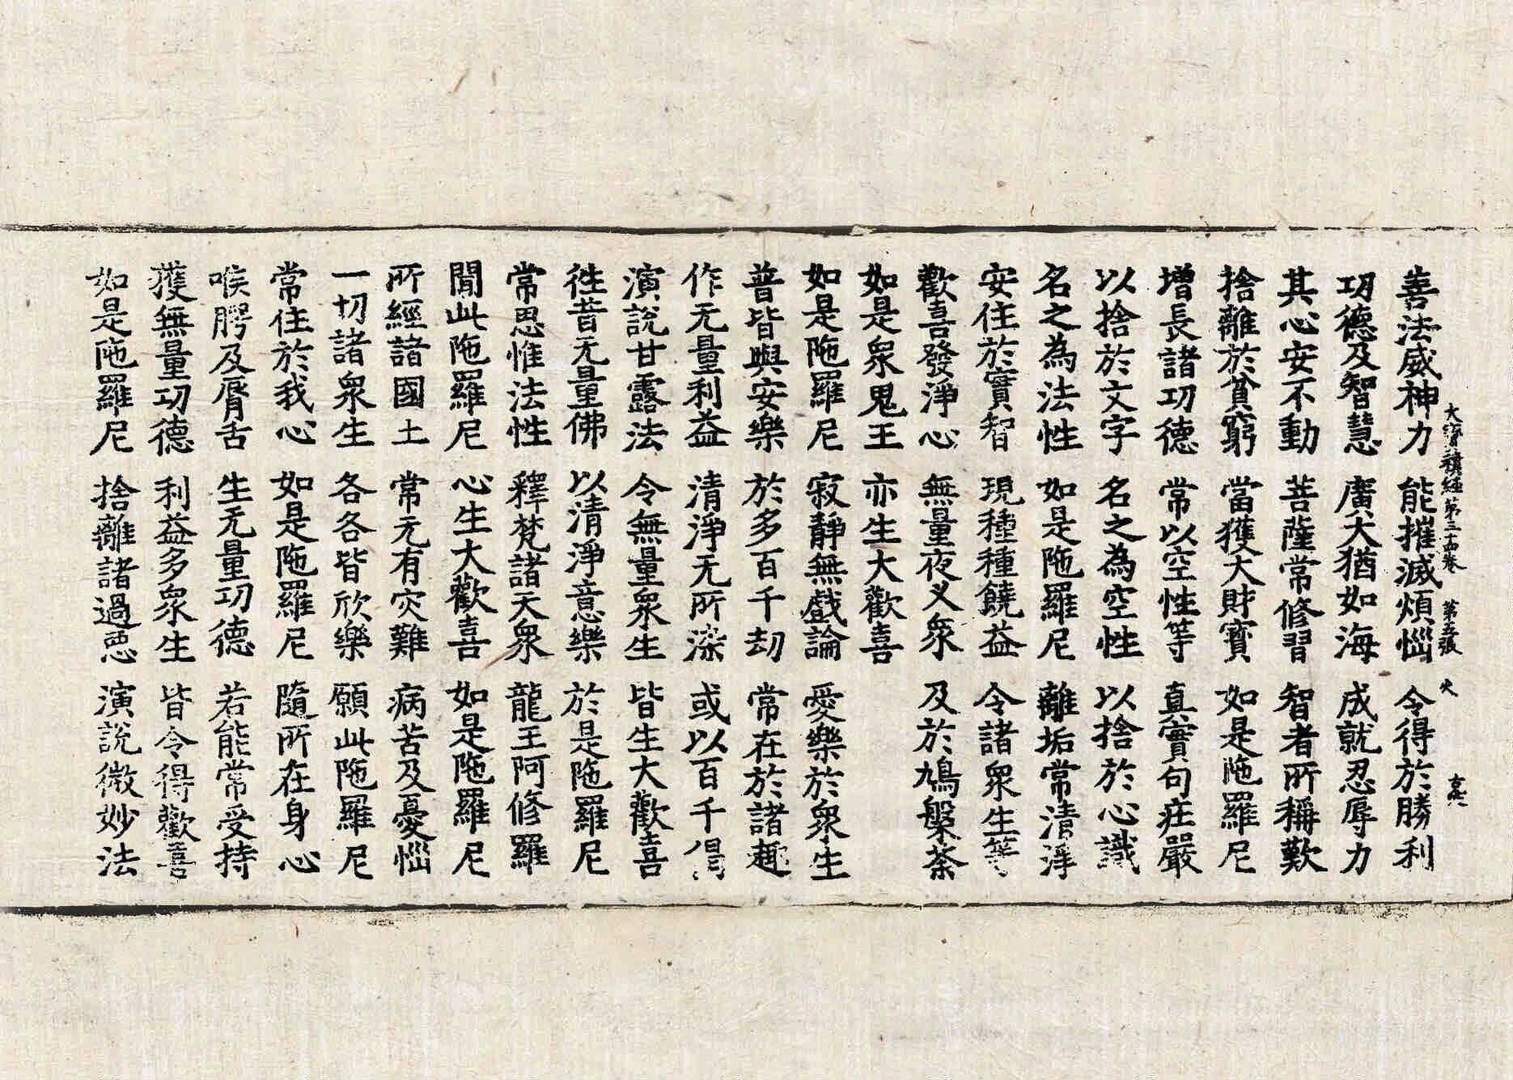 大寶積經第二十四卷 第五張 火
善法威神力 能摧滅煩惱 令得於勝利
功德及智慧 廣大猶如海 成就忍辱力
其心安不動 菩薩常修習 智者所稱歎
捨離於貧窮 當獲大財寶 如是陁羅尼
增長諸功德 常以空性等 真實句莊嚴
以捨於文字 名之為空性 以捨於心識
名之為法性 如是陁羅尼 離垢常清淨
安住於實智 現種種饒益 令諸眾生等
歡喜發淨心 無量夜叉眾 及於鳩槃荼
如是眾鬼王 亦生大歡喜
如是陁羅尼 寂靜無戲論 愛樂於眾生
普皆與安樂 於多百千劫 常在於諸趣
作无量利益 清淨无所染 或以百千偈
演說甘露法 令無量眾生 皆生大歡喜
徃昔无量佛 以清淨意樂 於是陁羅尼
常思惟法性 釋梵諸天眾 龍王阿修羅
聞此陁羅尼 心生大歡喜 如是陁羅尼
所經諸國土 常无有灾難 病苦及憂惱
一切諸眾生 各各皆欣樂 願此陁羅尼
常住於我心 如是陁羅尼 隨所在身心
喉腭及脣舌 生无量功德 若能常受持
獲無量功德 利益多眾生 皆令得歡喜
如是陁羅尼 捨離諸過惡 演說微妙法